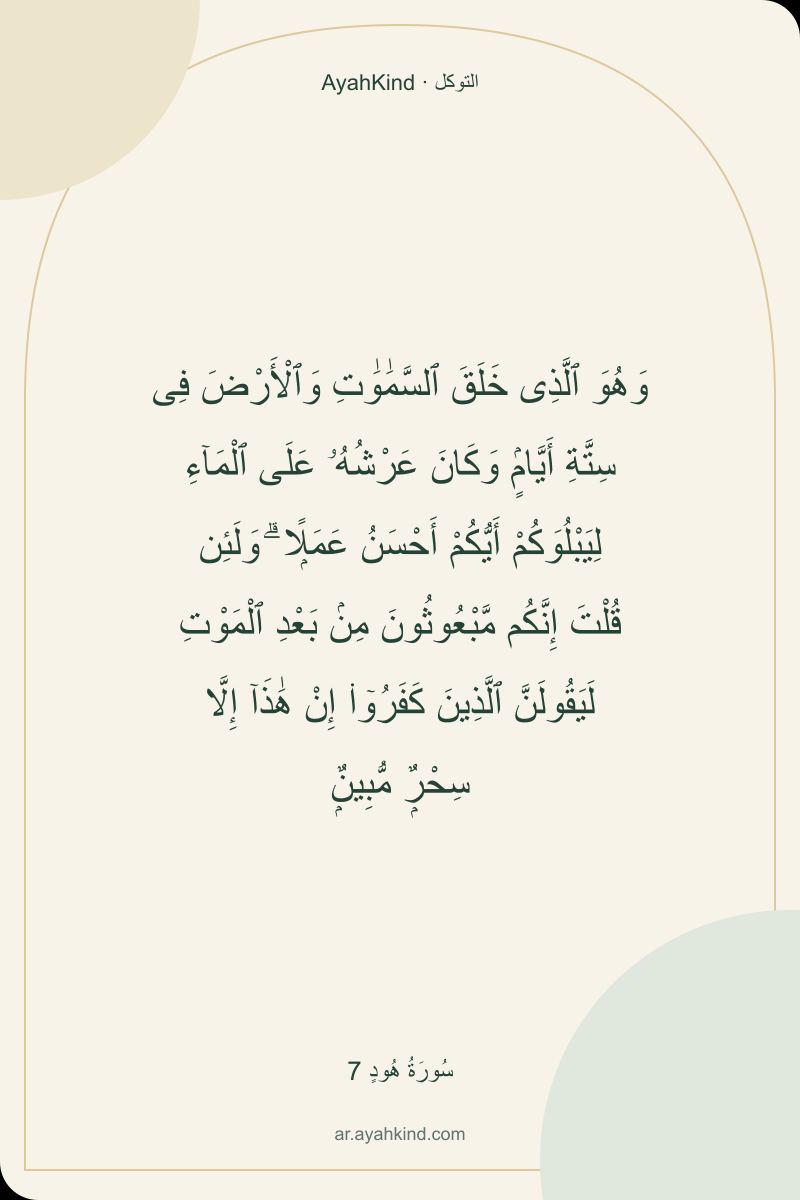 AyahKind · التوكل
وَهُوَ ٱلَّذِى خَلَقَ ٱلسَّمَٰوَٰتِ وَٱلْأَرْضَ فِى
سِتَّةِ أَيَّامٍۢ وَكَانَ عَرْشُهُۥ عَلَى ٱلْمَآءِ
لِيَبْلُوَكُمْ أَيُّكُمْ أَحْسَنُ عَمَلًۭا ۗ وَلَئِن
قُلْتَ إِنَّكُم مَّبْعُوثُونَ مِنۢ بَعْدِ ٱلْمَوْتِ
لَيَقُولَنَّ ٱلَّذِينَ كَفَرُوٓا۟ إِنْ هَٰذَآ إِلَّا
سِحْرٌۭ مُّبِينٌۭ
سُورَةُ هُودٍ 7
ar.ayahkind.com